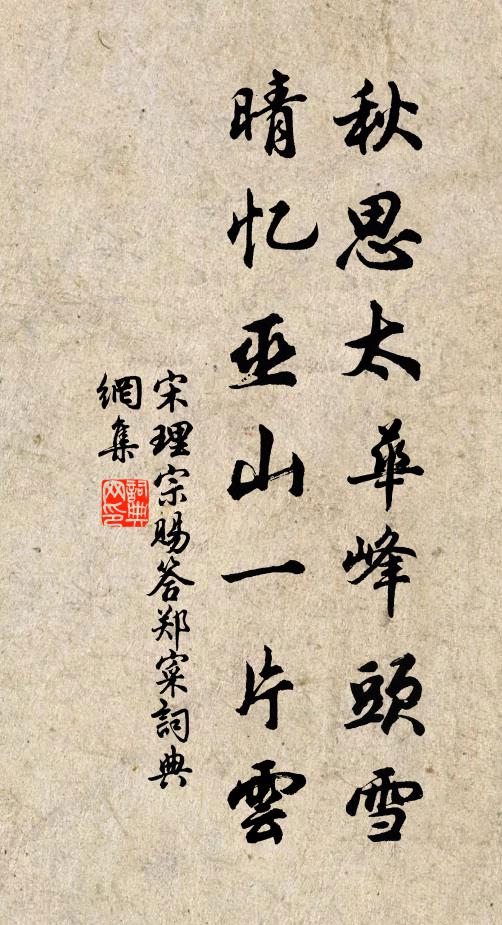 秋思太華峰頭雪
晴忆巫山一片雲
宋理宗赐答郑寀詞典
網集
詞典网印